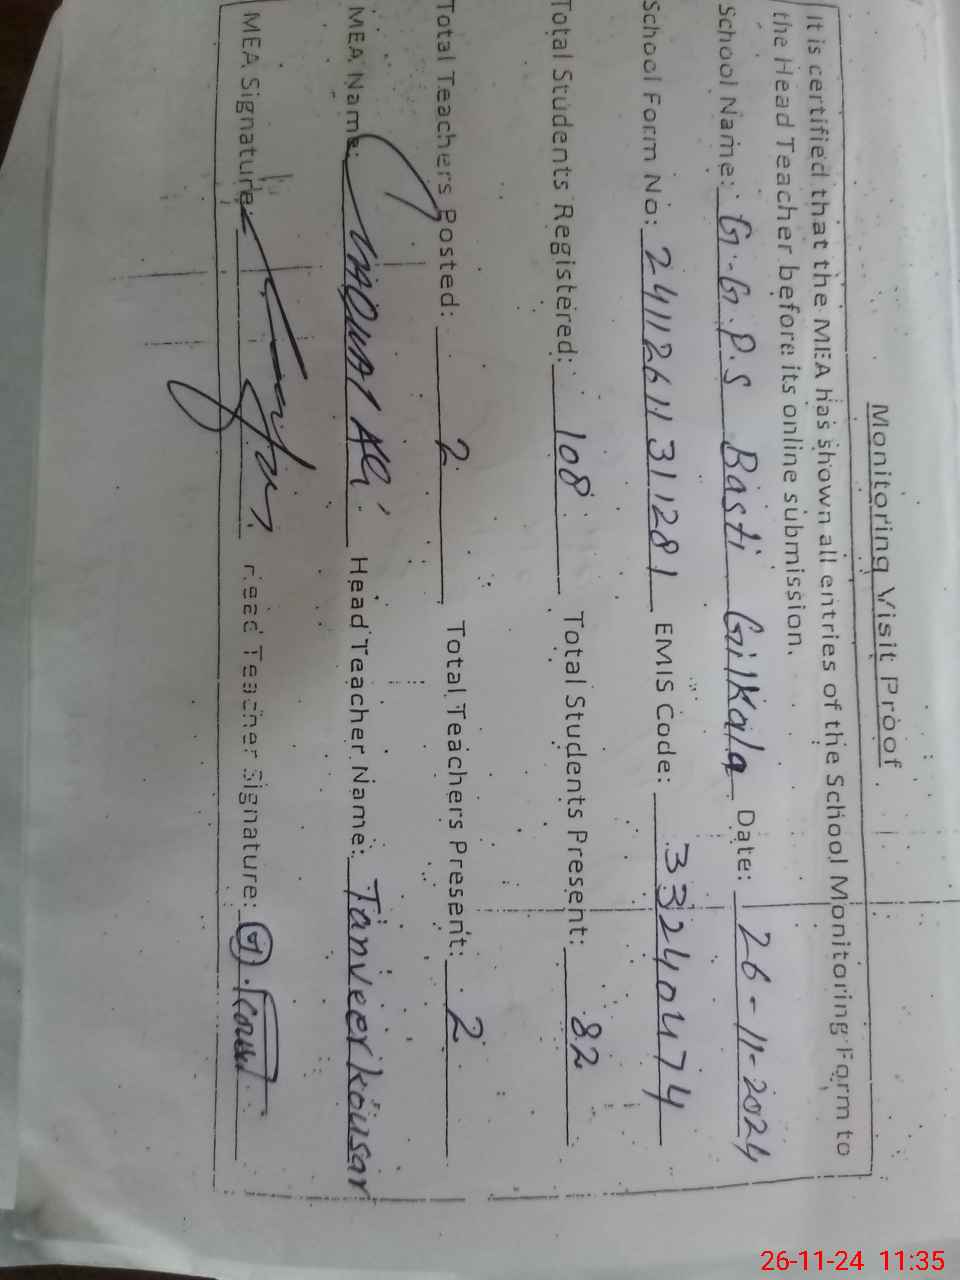 Monitoring Visit Proof
It is certified that the MEA has shown all entries of the School Monitoring Form to
the Head Teacher before its online submission.
School Name: G.G.P.S Basti Gilkala Date: 26-11-2024
School Form No: 2411261131281 EMIS Code: 33240474
Total Students Registered: 108 Total Students Present: 82
Total Teachers Posted: 2 Total Teachers Present: 2
MEA Name: Ali Head Teacher Name: Tanveer kousar
MEA Signature: Head Teacher Signature:
26-11-24 11:35